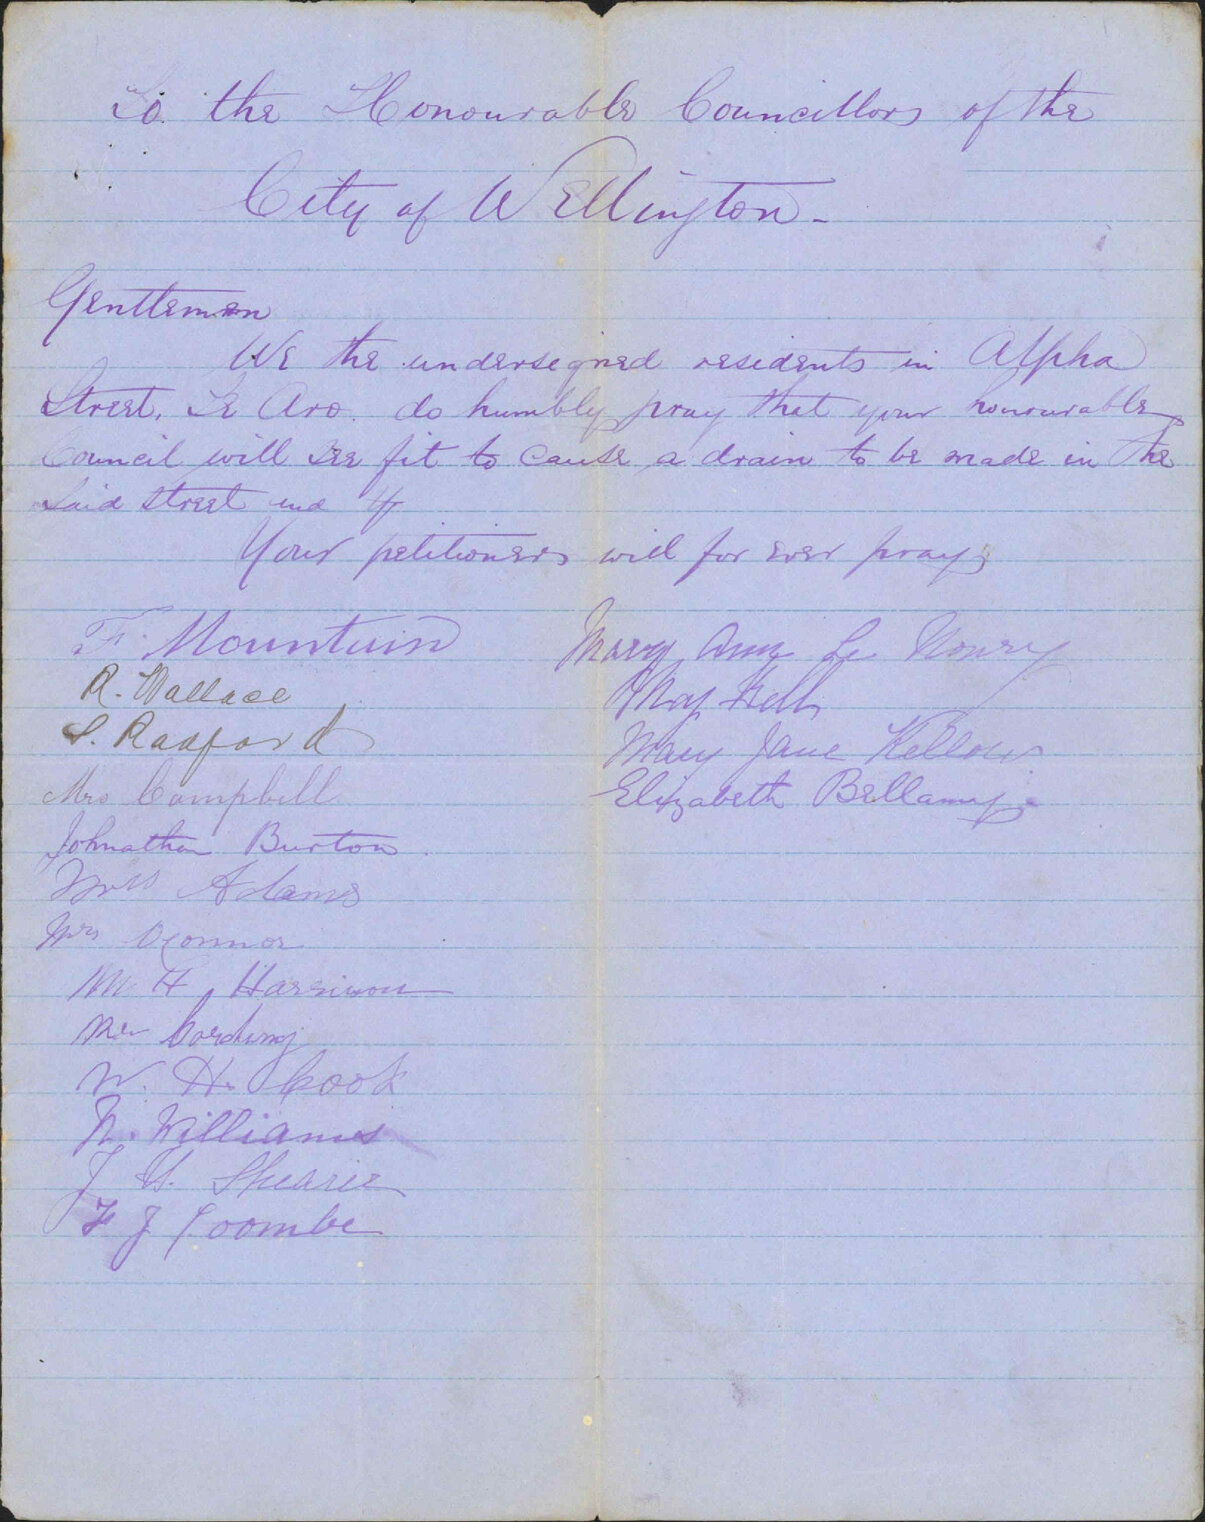 To the Honourable Councillors of the
City of Wellington -
Gentlemen
We the undersegned residents in Alpha
Street, Te Aro. do humbly pray that your honourable
Council will see fit to cause a drain to be made in the
said street and
Your petitioners will for ever pray
F. Mountain
R. Wallace
S. Radford
Mrs Campbell
Johnathan Burton
Mrs Adams
Mrs OConnor
H Harrison
W. H. Cook
Williams
J Shearer
F J Coombe
Mary Ann Le
Mary Jane Kellow
Elizabeth Bellamy